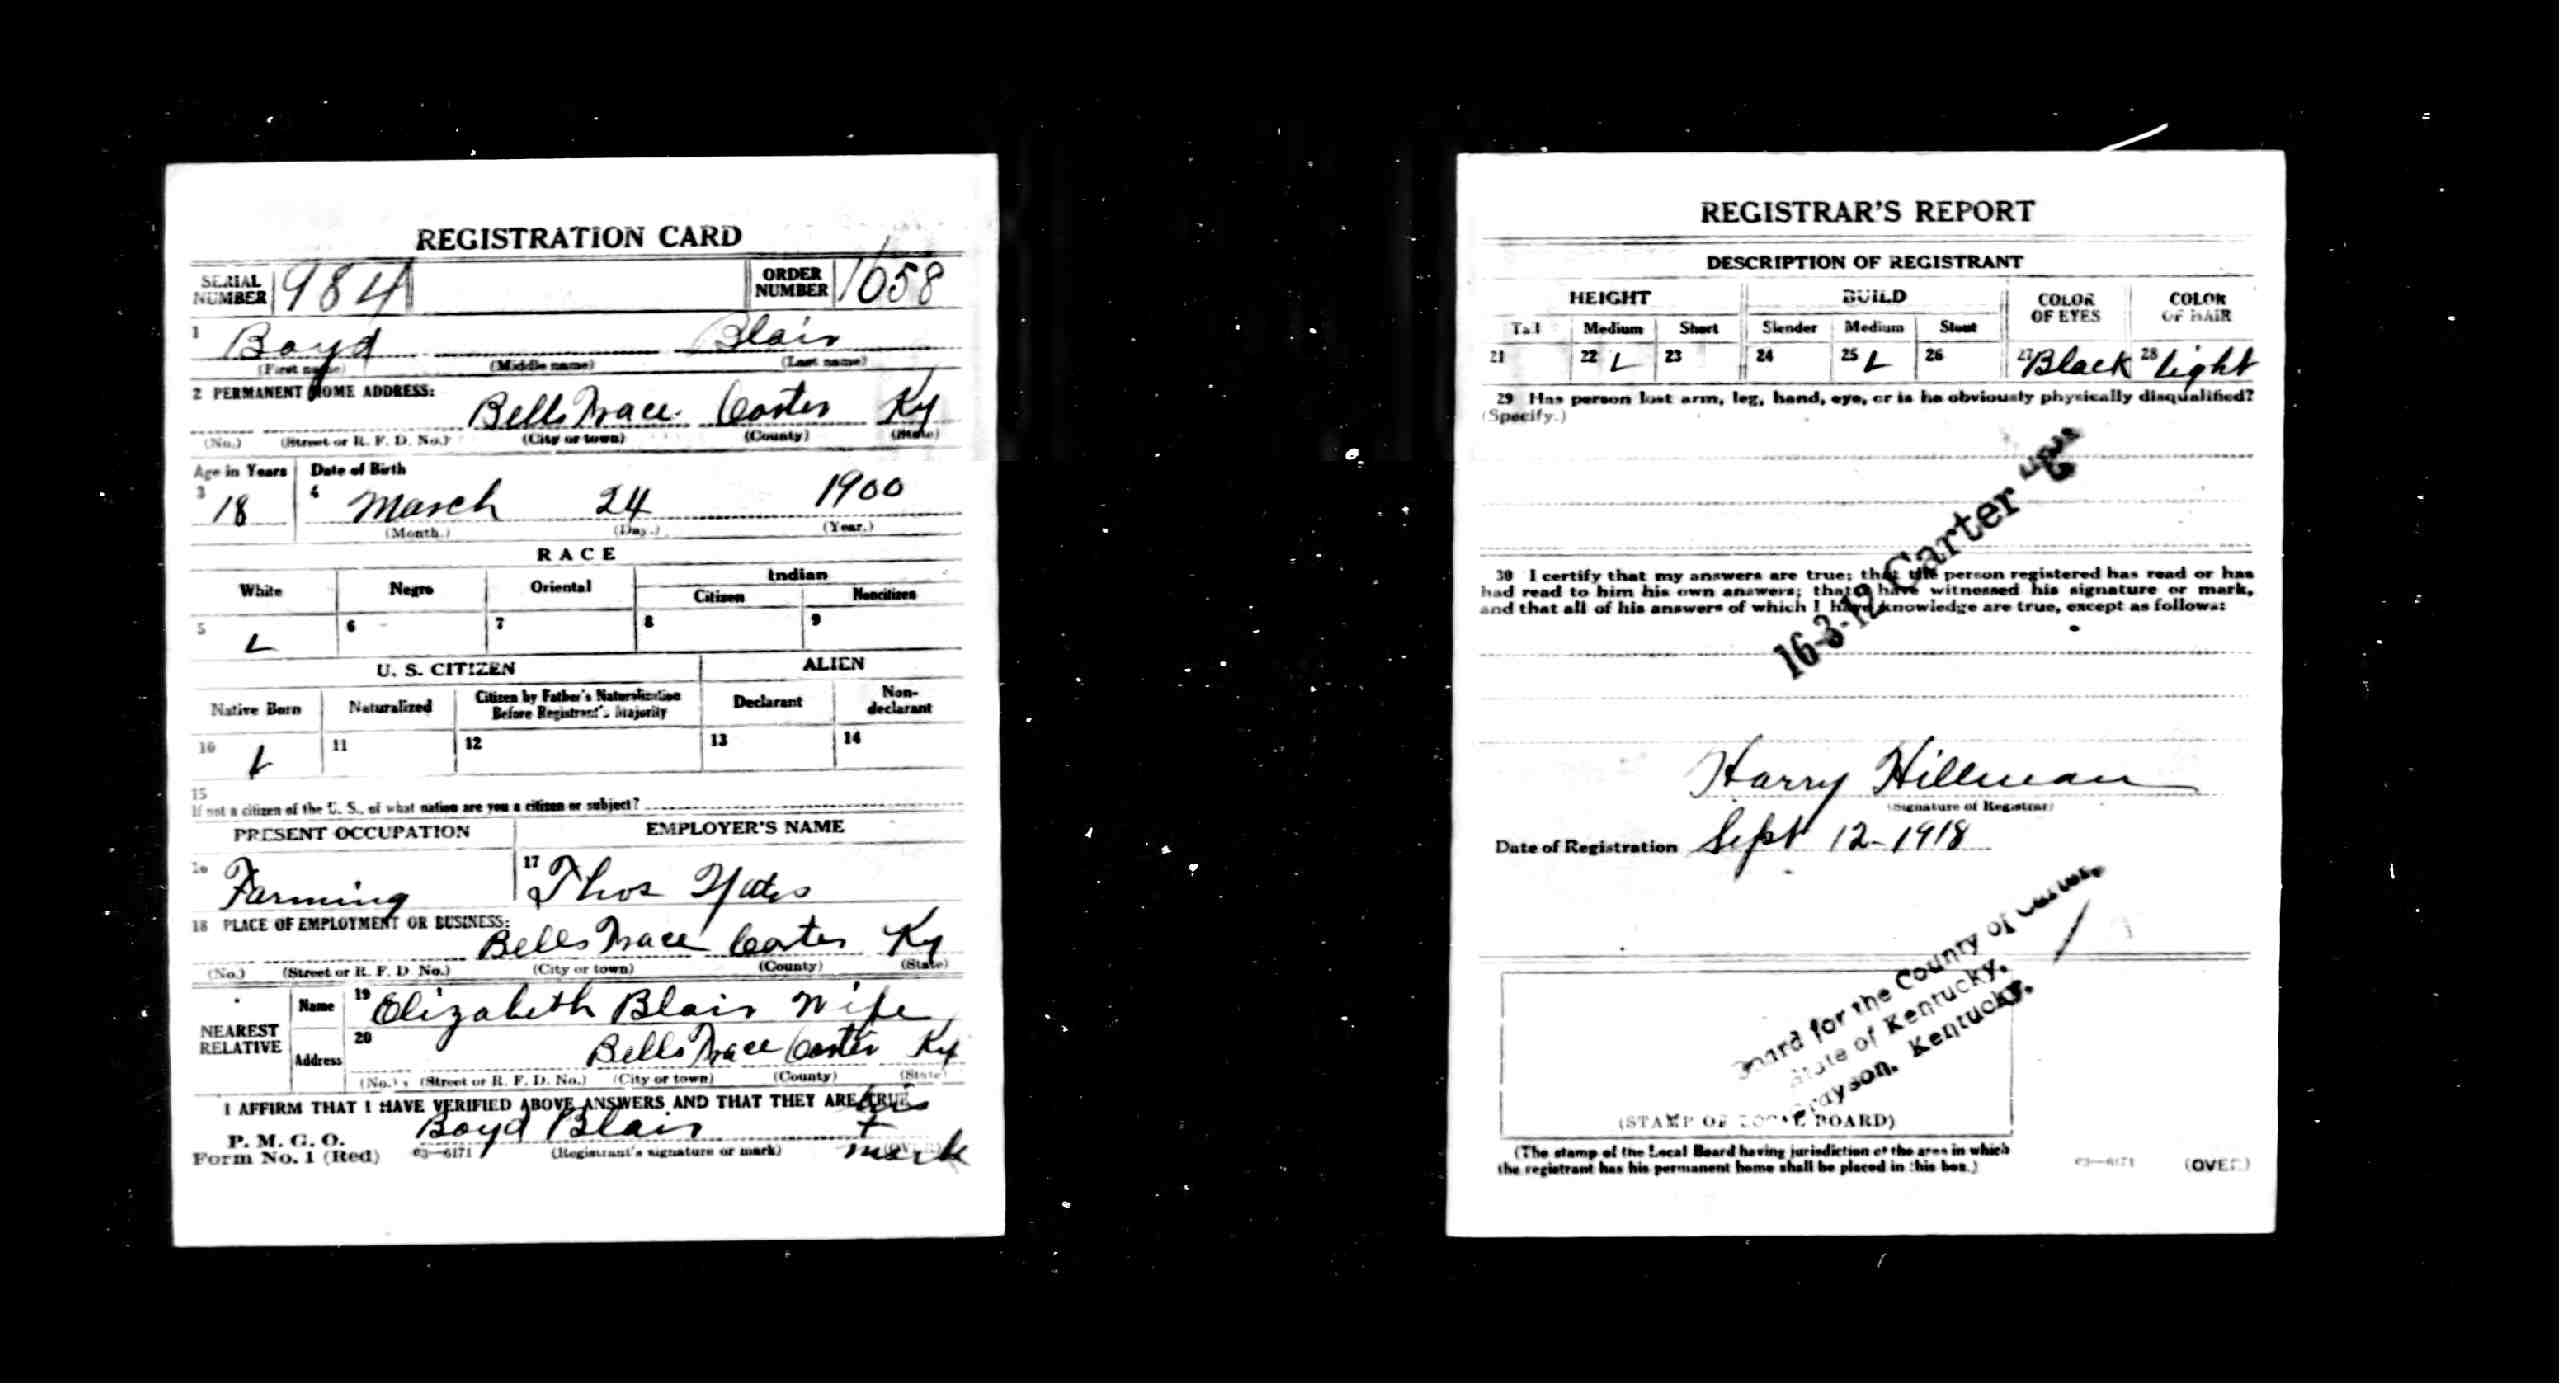 REGISTRATION CARD
SERIAL NUMBER 984 ORDER NUMBER 1658
1 Boyd Blair
(First name) (Middle name) (Last name)
2 PERMANENT HOME ADDRESS:
Bells Trace Carter Ky
(No.) (Street or R. F. D. No.) (City or town) (County) (State)
Age in Years Date of Birth
3 18 4 March 24 1900
(Month.) (Day.) (Year.)
RACE
White Negro Oriental Indian
Citizen Noncitizen
5 L 6 7 8 9
U. S. CITIZEN ALIEN
Native Born Naturalized Citizen by Father's Naturalization Before Registrant's Majority Declarant Non-declarant
10 L 11 12 13 14
15
If not a citizen of the U. S., of what nation are you a citizen or subject?
PRESENT OCCUPATION EMPLOYER'S NAME
16 Farming 17 Thos Yates
18 PLACE OF EMPLOYMENT OR BUSINESS:
Bells Trace Carter Ky
(No.) (Street or R. F. D. No.) (City or town) (County) (State)
NEAREST RELATIVE
Name 19 Elizabeth Blair Wife
Address 20 Bells Trace Carter Ky
(No.) (Street or R. F. D. No.) (City or town) (County) (State)
I AFFIRM THAT I HAVE VERIFIED ABOVE ANSWERS AND THAT THEY ARE TRUE
his
P. M. G. O. Boyd Blair +
Form No. 1 (Red) 03—6171 (Registrant's signature or mark) mark
REGISTRAR'S REPORT
DESCRIPTION OF REGISTRANT
HEIGHT BUILD COLOR OF EYES COLOR OF HAIR
Tall Medium Short Slender Medium Stout
21 22 L 23 24 25 L 26 27 Black 28 Light
29 Has person lost arm, leg, hand, eye, or is he obviously physically disqualified?
(Specify.)
16-3-12 Carter
30 I certify that my answers are true; that the person registered has read or has
had read to him his own answers; that I have witnessed his signature or mark,
and that all of his answers of which I have knowledge are true, except as follows:
Harry Hillman
(Signature of Registrar)
Date of Registration Sept 12-1918
Board for the County of Carter,
State of Kentucky,
Grayson, Kentucky.
(STAMP OF LOCAL BOARD)
(The stamp of the Local Board having jurisdiction of the area in which
the registrant has his permanent home shall be placed in this box.)
03—6171 (OVER)